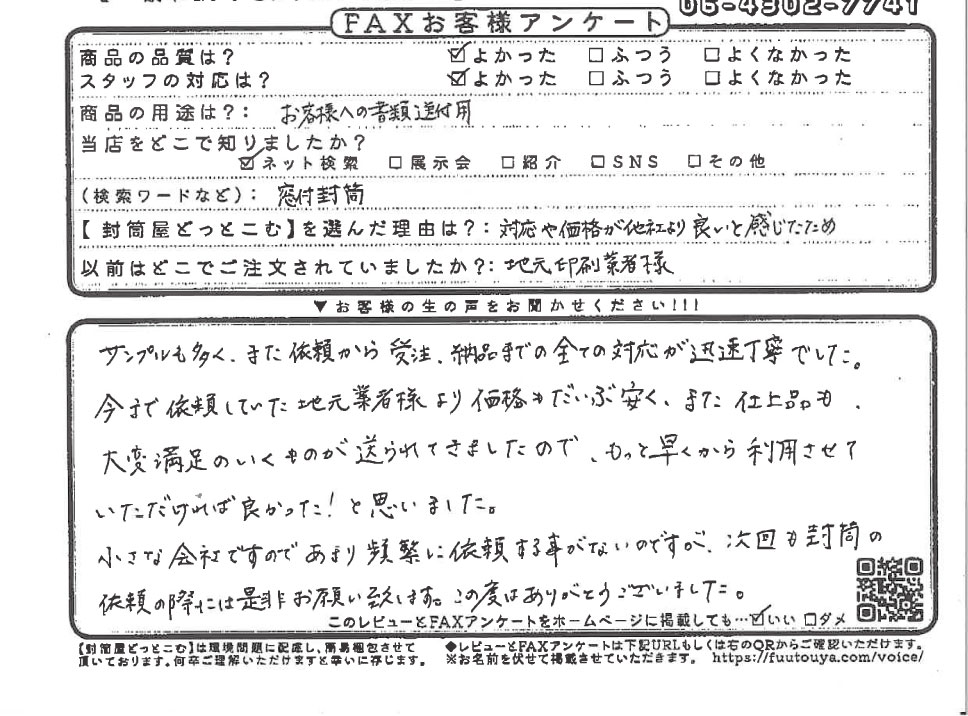 06-4302-7741
FAXお客様アンケート
商品の品質は? ☑よかった □ふつう □よくなかった
スタッフの対応は? ☑よかった □ふつう □よくなかった
商品の用途は?: お客様への書類送付用
当店をどこで知りましたか?
☑ネット検索 □展示会 □紹介 □SNS □その他
(検索ワードなど): 窓付封筒
【封筒屋どっとこむ】を選んだ理由は?: 対応や価格が他社より良いと感じたため
以前はどこでご注文されていましたか?: 地元印刷業者様
▼お客様の生の声をお聞かせください!!!
サンプルも多く、また依頼から受注、納品までの全ての対応が迅速丁寧でした。
今まで依頼していた地元業者様より価格もだいぶ安く、また仕上品も、
大変満足のいくものが送られてきましたので、もっと早くから利用させて
いただければ良かった!と思いました。
小さな会社ですのであまり頻繁に依頼する事がないのですが、次回も封筒の
依頼の際には是非お願い致します。この度はありがとうございました。
このレビューとFAXアンケートをホームページに掲載しても…☑いい □ダメ
【封筒屋どっとこむ】は環境問題に配慮し、簡易梱包させて
頂いております。何卒ご理解いただけますと幸いに存じます。
◆レビューとFAXアンケートは下記URLもしくは右のQRからご確認いただけます。
※お名前を伏せて掲載させていただきます。 https://fuutouya.com/voice/